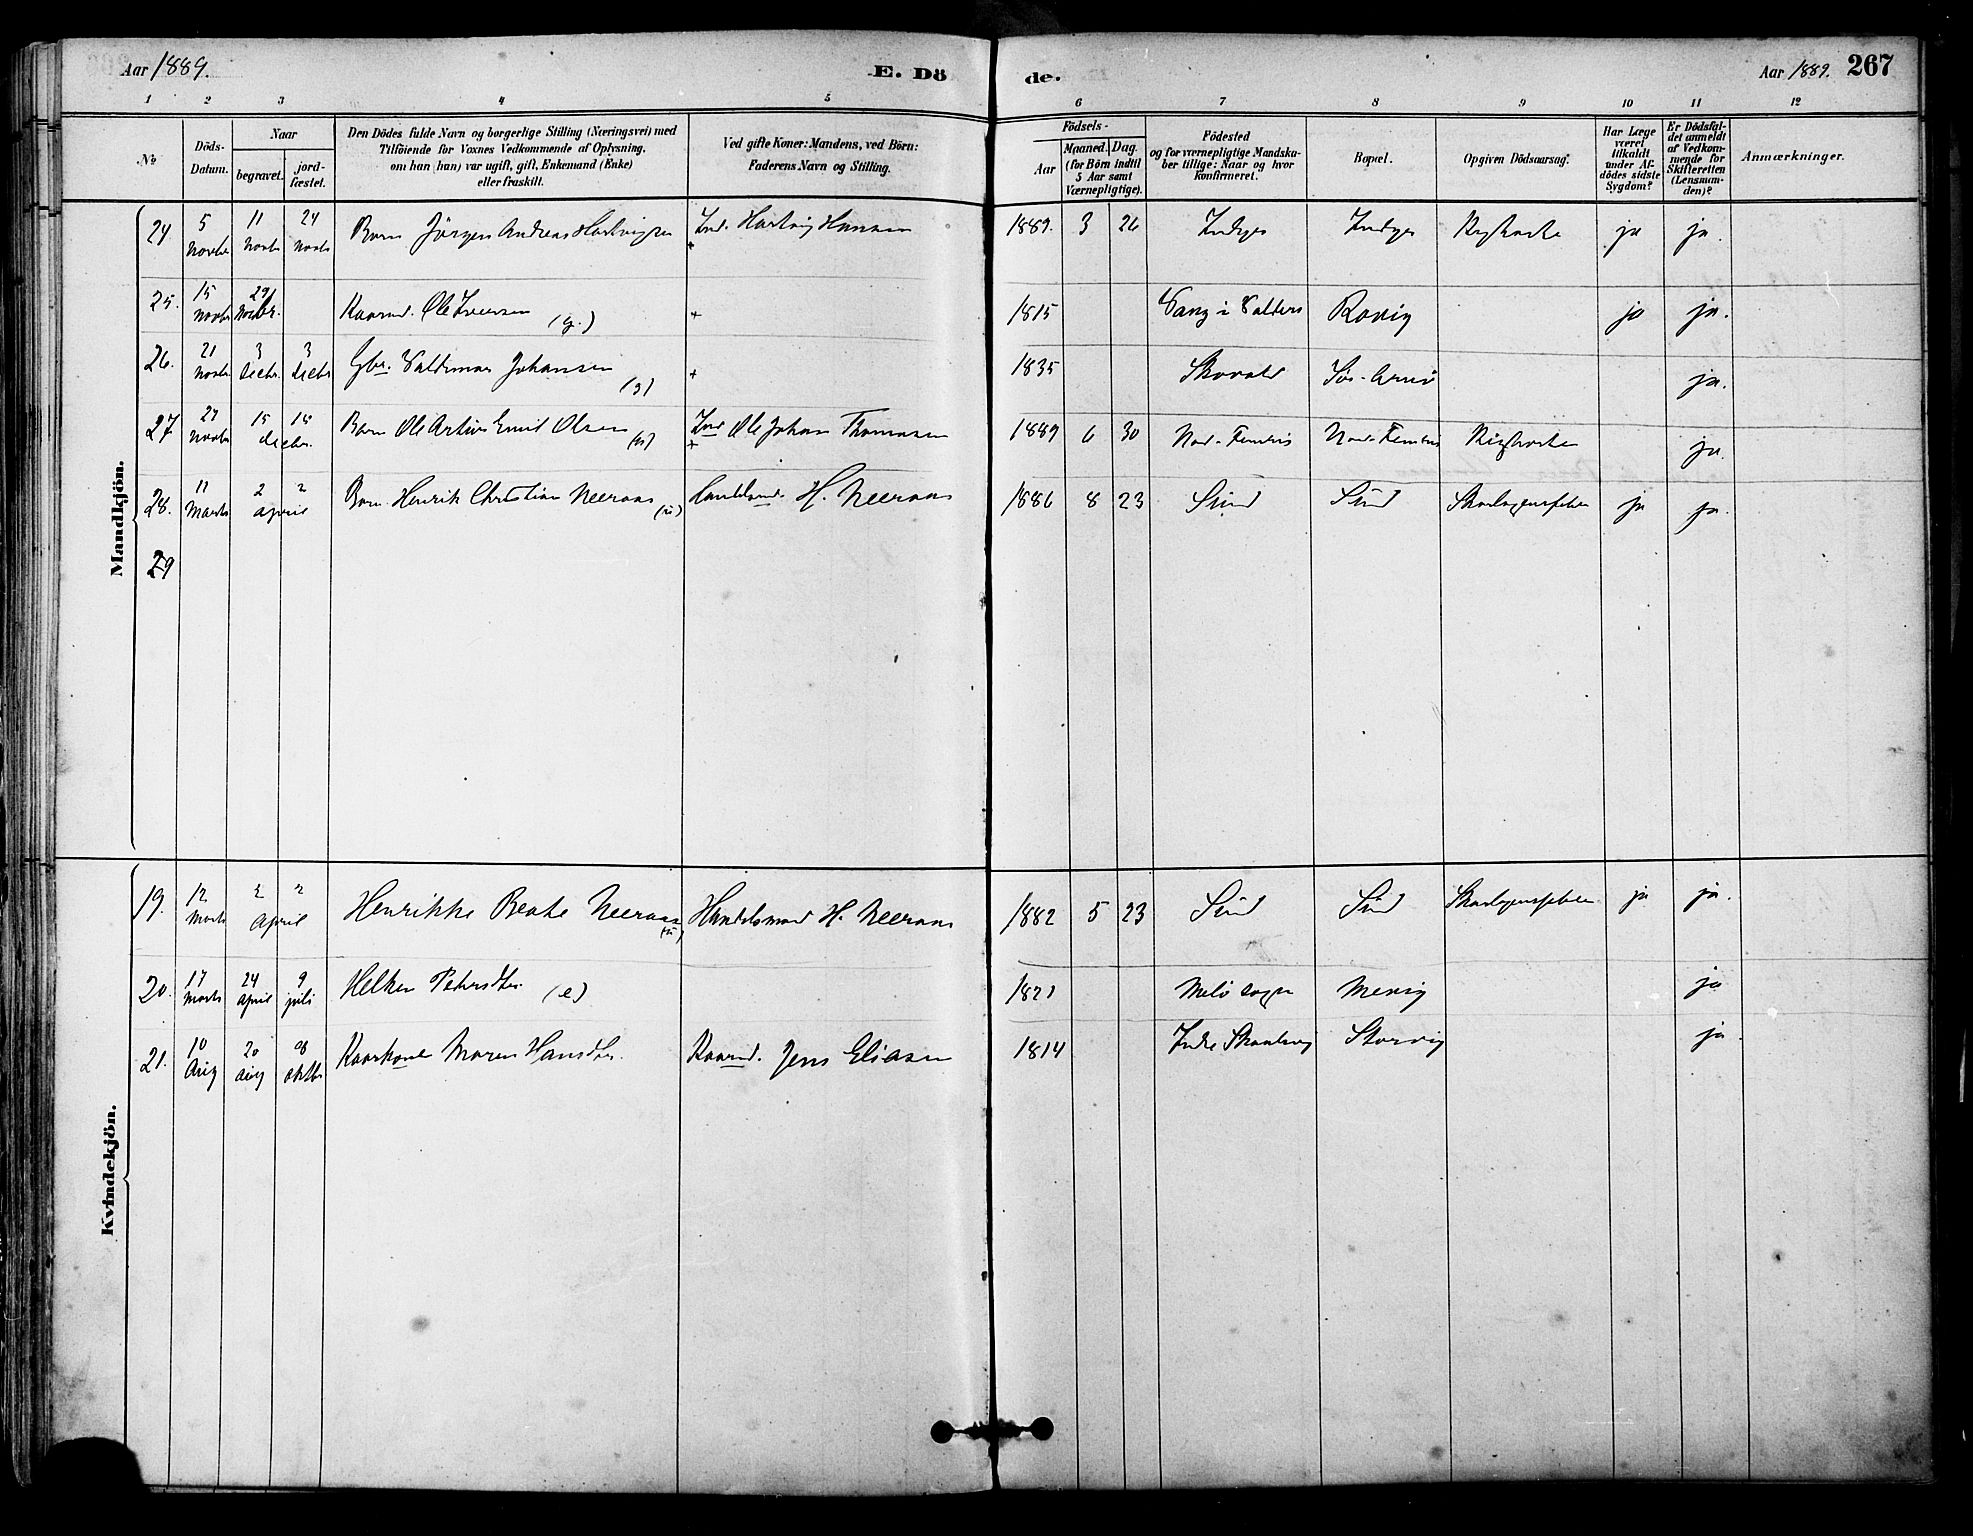 Aar 1889.
E. Dö
de.
Aar 1889. 267
1 2 3 4 5 6 7 8 9 10 11 12
No
Döds-Datum.
Naar
begravet.
jord-fæstet.
Den Dödes fulde Navn og borgerlige Stilling (Næringsvei) med
Tilföiende for Voxnes Vedkommende af Oplysning,
om han (hun) var ugift, gift, Enkemand (Enke)
eller fraskilt.
Ved gifte Koner: Mandens, ved Börn:
Faderens Navn og Stilling.
Födsels-
Aar
Maaned. Dag.
(for Börn indtil
5 Aar samt
Værnepligtige).
Födested
og for værnepligtige Mandska-
ber tillige: Naar og hvor
konfirmeret.
Bopæl.
Opgiven Dödsaarsag.
Har Læge
været
tilkaldt
under Af-
dödes sidste
Sygdom?
Er Dödsfal-
det anmeldt
af Vedkom-
mende for
Skifteretten
(Lensman-
den)?
Anmærkninger.
Mandkjön.
24 5 Novbr 11 Novbr 24 Novbr Barn Jörgen Andreas Hartvigsen Ind. Hartvig Hansen + 1889. 3 26 Indyr Indyr ja ja.
25. 15 Novbr 29 Novbr. Kaarmd. Ole Iversen (g.) + 1815 Vang i Valders ja ja.
26. 21 Novbr. 3 Decbr. 3 Decbr Gbr. Valdemar Johansen (g) + 1835 ja.
27 27 Novbr 15 15 Decbr. Barn Ole Artur Emil Olsen (u) Ind Ole Johan Thomasen + 1889 6 30 ja.
28. 11 Marts 2 2 April Barn Henrik Christian Neeraas (u) Handelsmd H. Neeraas 1886 8 23 Sund Sund Skarlagensfeber ja ja.
29
Kvindekjön.
19. 12 Marts 2 2 April Henrikke Beate Neeraas (u) Handelsmand H. Neeraas 1882 5 23 Sund Sund Skarlagensfeber ja ja.
20. 17 Marts 24 April 9 juli Petersdtr. (e) 1821 Melö sogn Mevig ja
21. 10 Aug 20 Aug Oktbr Kaarkone Maren Hansdtr. Kaarmd. Jens Eliasen 1814 Indre Storvig ja.